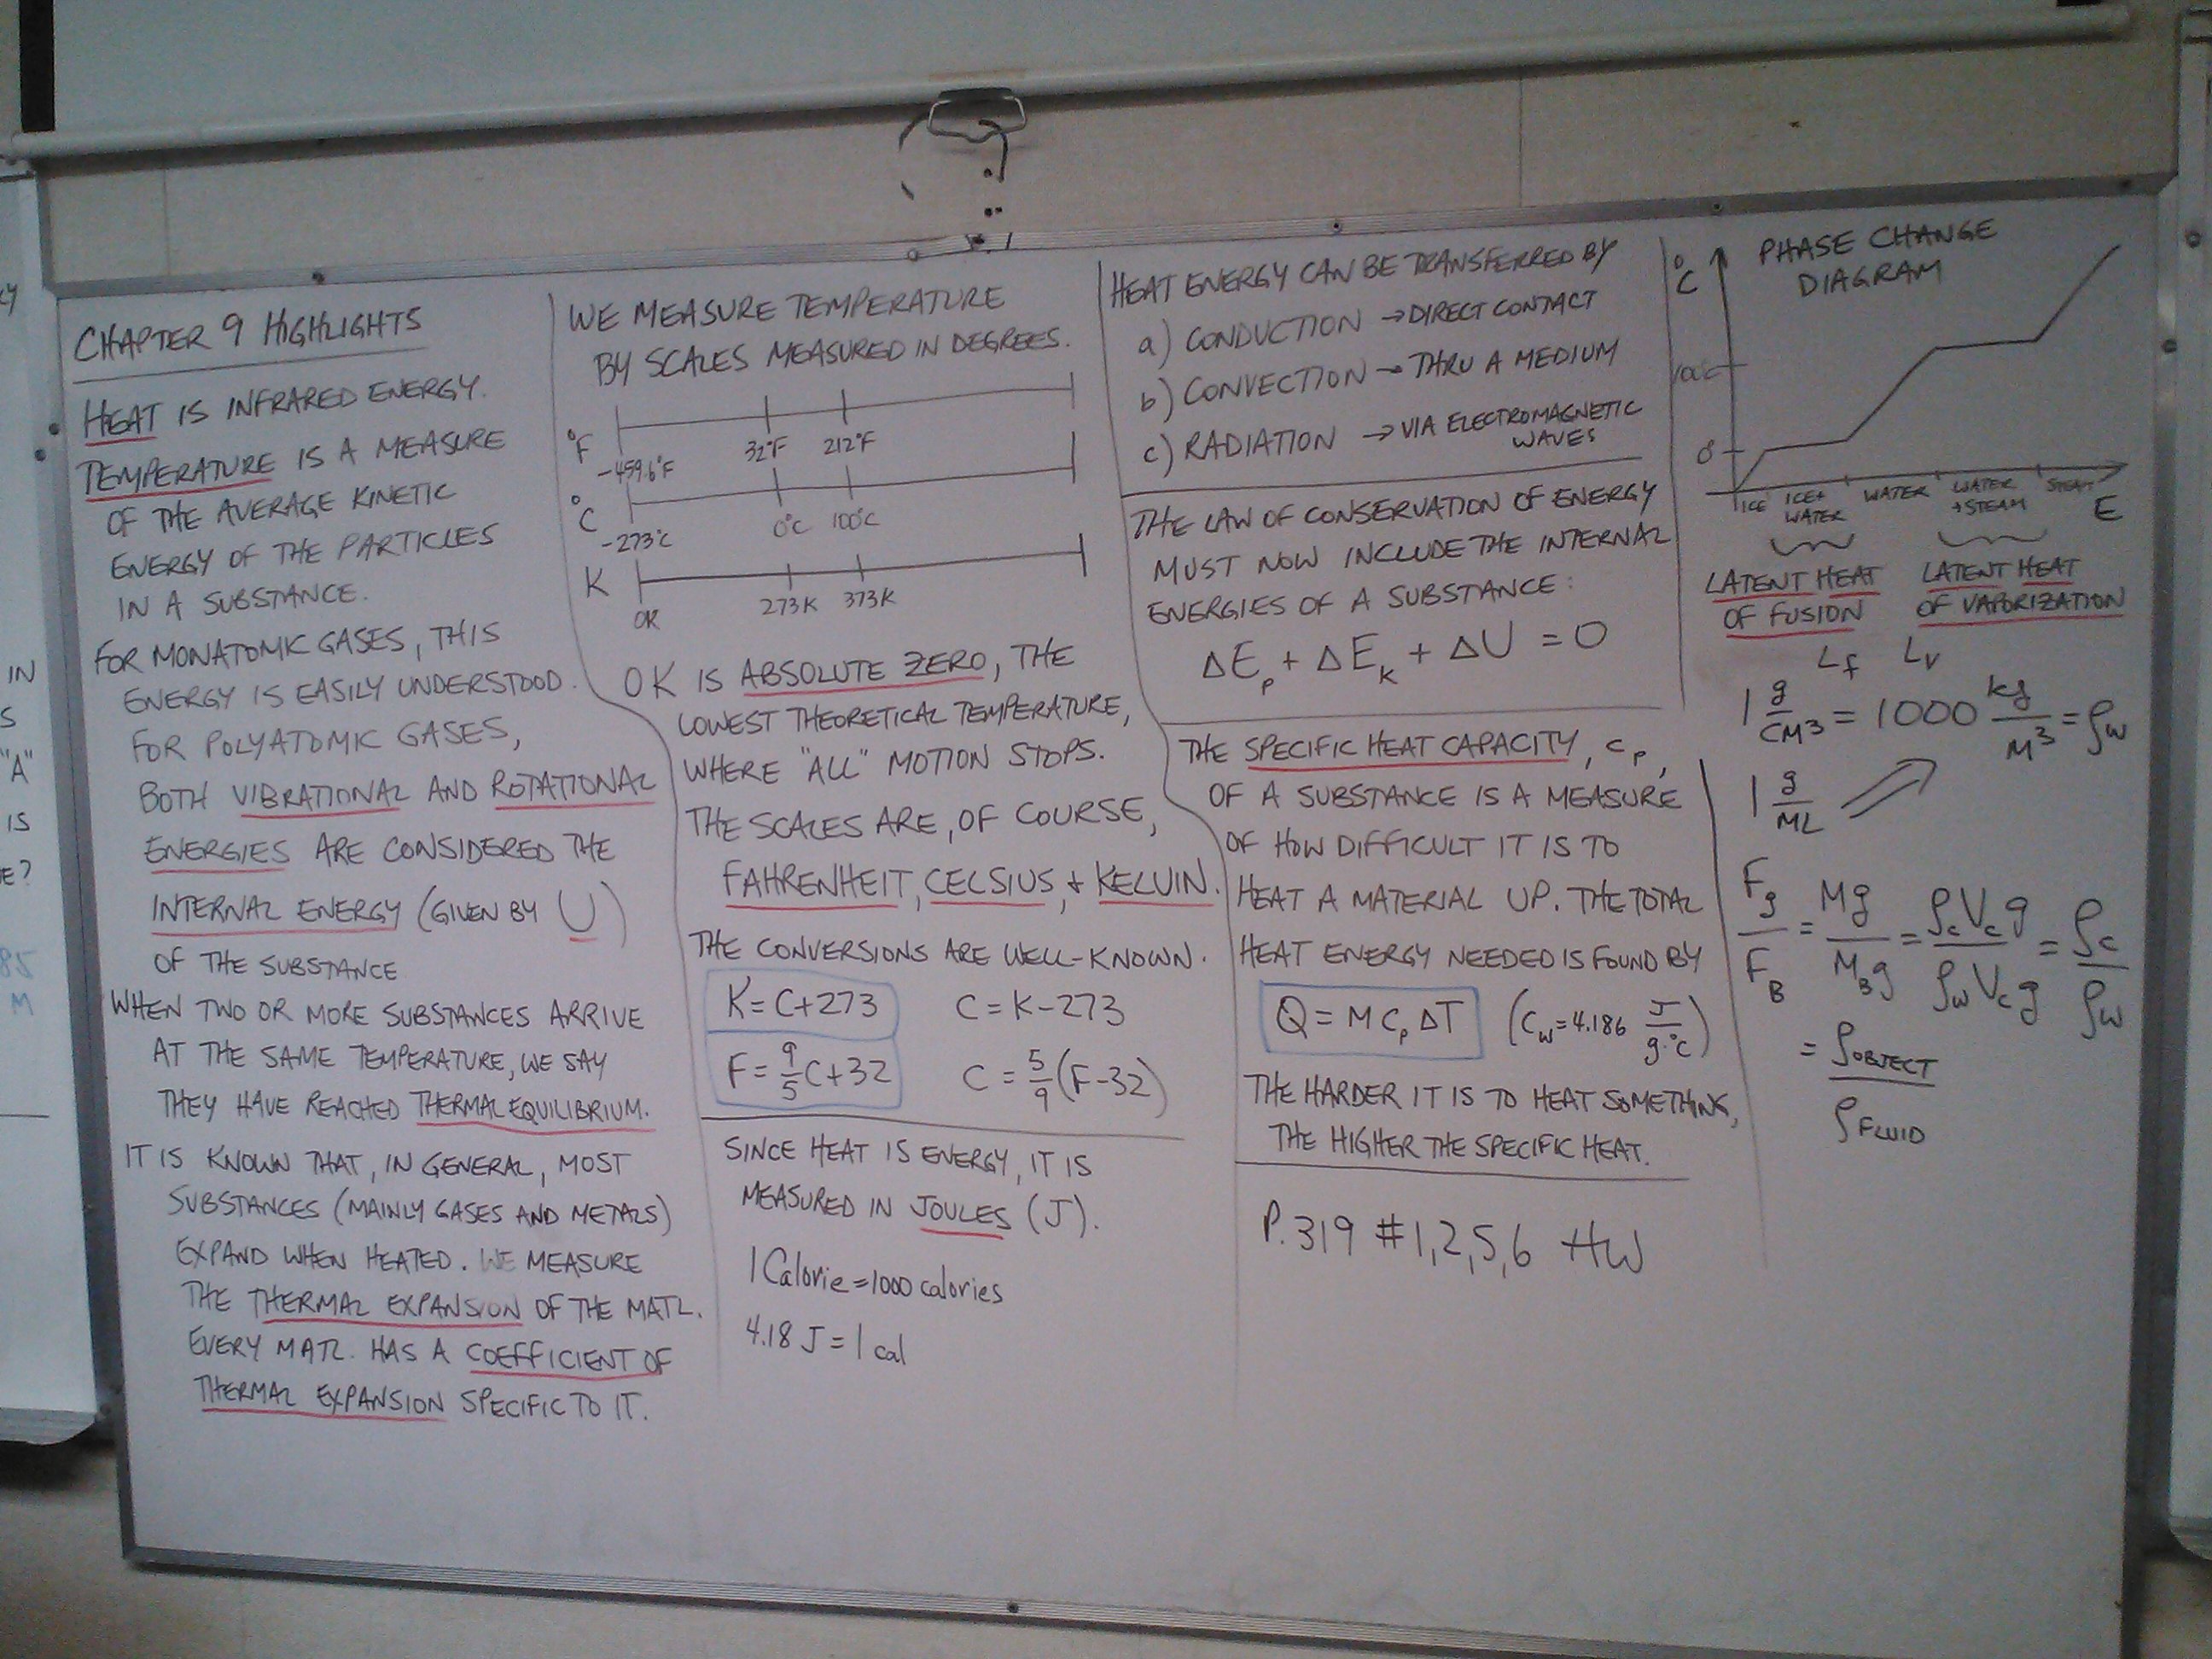 CHAPTER 9 HIGHLIGHTS
HEAT IS INFRARED ENERGY.
TEMPERATURE IS A MEASURE
OF THE AVERAGE KINETIC
ENERGY OF THE PARTICLES
IN A SUBSTANCE.
FOR MONATOMIC GASES, THIS
ENERGY IS EASILY UNDERSTOOD.
FOR POLYATOMIC GASES,
BOTH VIBRATIONAL AND ROTATIONAL
ENERGIES ARE CONSIDERED THE
INTERNAL ENERGY (GIVEN BY U)
OF THE SUBSTANCE
WHEN TWO OR MORE SUBSTANCES ARRIVE
AT THE SAME TEMPERATURE, WE SAY
THEY HAVE REACHED THERMAL EQUILIBRIUM.
IT IS KNOWN THAT, IN GENERAL, MOST
SUBSTANCES (MAINLY GASES AND METALS)
EXPAND WHEN HEATED. WE MEASURE
THE THERMAL EXPANSION OF THE MATL.
EVERY MATL. HAS A COEFFICIENT OF
THERMAL EXPANSION SPECIFIC TO IT.
WE MEASURE TEMPERATURE
BY SCALES MEASURED IN DEGREES.
°F
-459.6°F 32°F 212°F
°C
-273°C 0°C 100°C
K
0K 273K 373K
0K IS ABSOLUTE ZERO, THE
LOWEST THEORETICAL TEMPERATURE,
WHERE "ALL" MOTION STOPS.
THE SCALES ARE, OF COURSE,
FAHRENHEIT, CELSIUS, + KELVIN.
THE CONVERSIONS ARE WELL-KNOWN.
K = C+273 C = K-273
F = 9/5 C+32 C = 5/9 (F-32)
SINCE HEAT IS ENERGY, IT IS
MEASURED IN JOULES (J).
1 Calorie = 1000 calories
4.18 J = 1 cal
HEAT ENERGY CAN BE TRANSFERRED BY
a) CONDUCTION → DIRECT CONTACT
b) CONVECTION → THRU A MEDIUM
c) RADIATION → VIA ELECTROMAGNETIC
WAVES
THE LAW OF CONSERVATION OF ENERGY
MUST NOW INCLUDE THE INTERNAL
ENERGIES OF A SUBSTANCE:
ΔEp + ΔEK + ΔU = 0
THE SPECIFIC HEAT CAPACITY, cp,
OF A SUBSTANCE IS A MEASURE
OF HOW DIFFICULT IT IS TO
HEAT A MATERIAL UP. THE TOTAL
HEAT ENERGY NEEDED IS FOUND BY
Q = M Cp ΔT (Cw = 4.186 J/g·°C)
THE HARDER IT IS TO HEAT SOMETHING,
THE HIGHER THE SPECIFIC HEAT.
P. 319 #1,2,5,6 HW
°C PHASE CHANGE
DIAGRAM
100°C
0°
ICE ICE+ WATER WATER WATER +STEAM STEAM
E
LATENT HEAT
OF FUSION
LATENT HEAT
OF VAPORIZATION
Lf Lv
1 g/CM³ = 1000 kg/M³ = ρw
1 g/ML
Fg/FB = Mg/MBg = ρcVcg/ρwVcg = ρc/ρw
= ρOBJECT/ρFLUID
IN
S
"A"
IS
E?
85
M